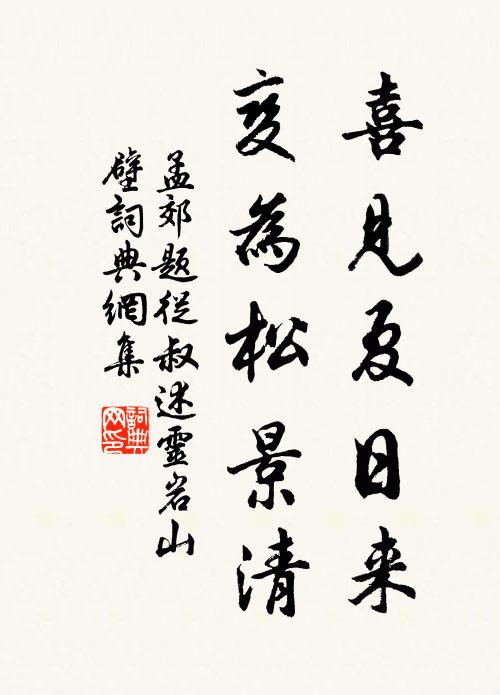 喜見夏日来
变為松景清
孟郊題從叔述靈岩山
壁詞典網集
詞典网印